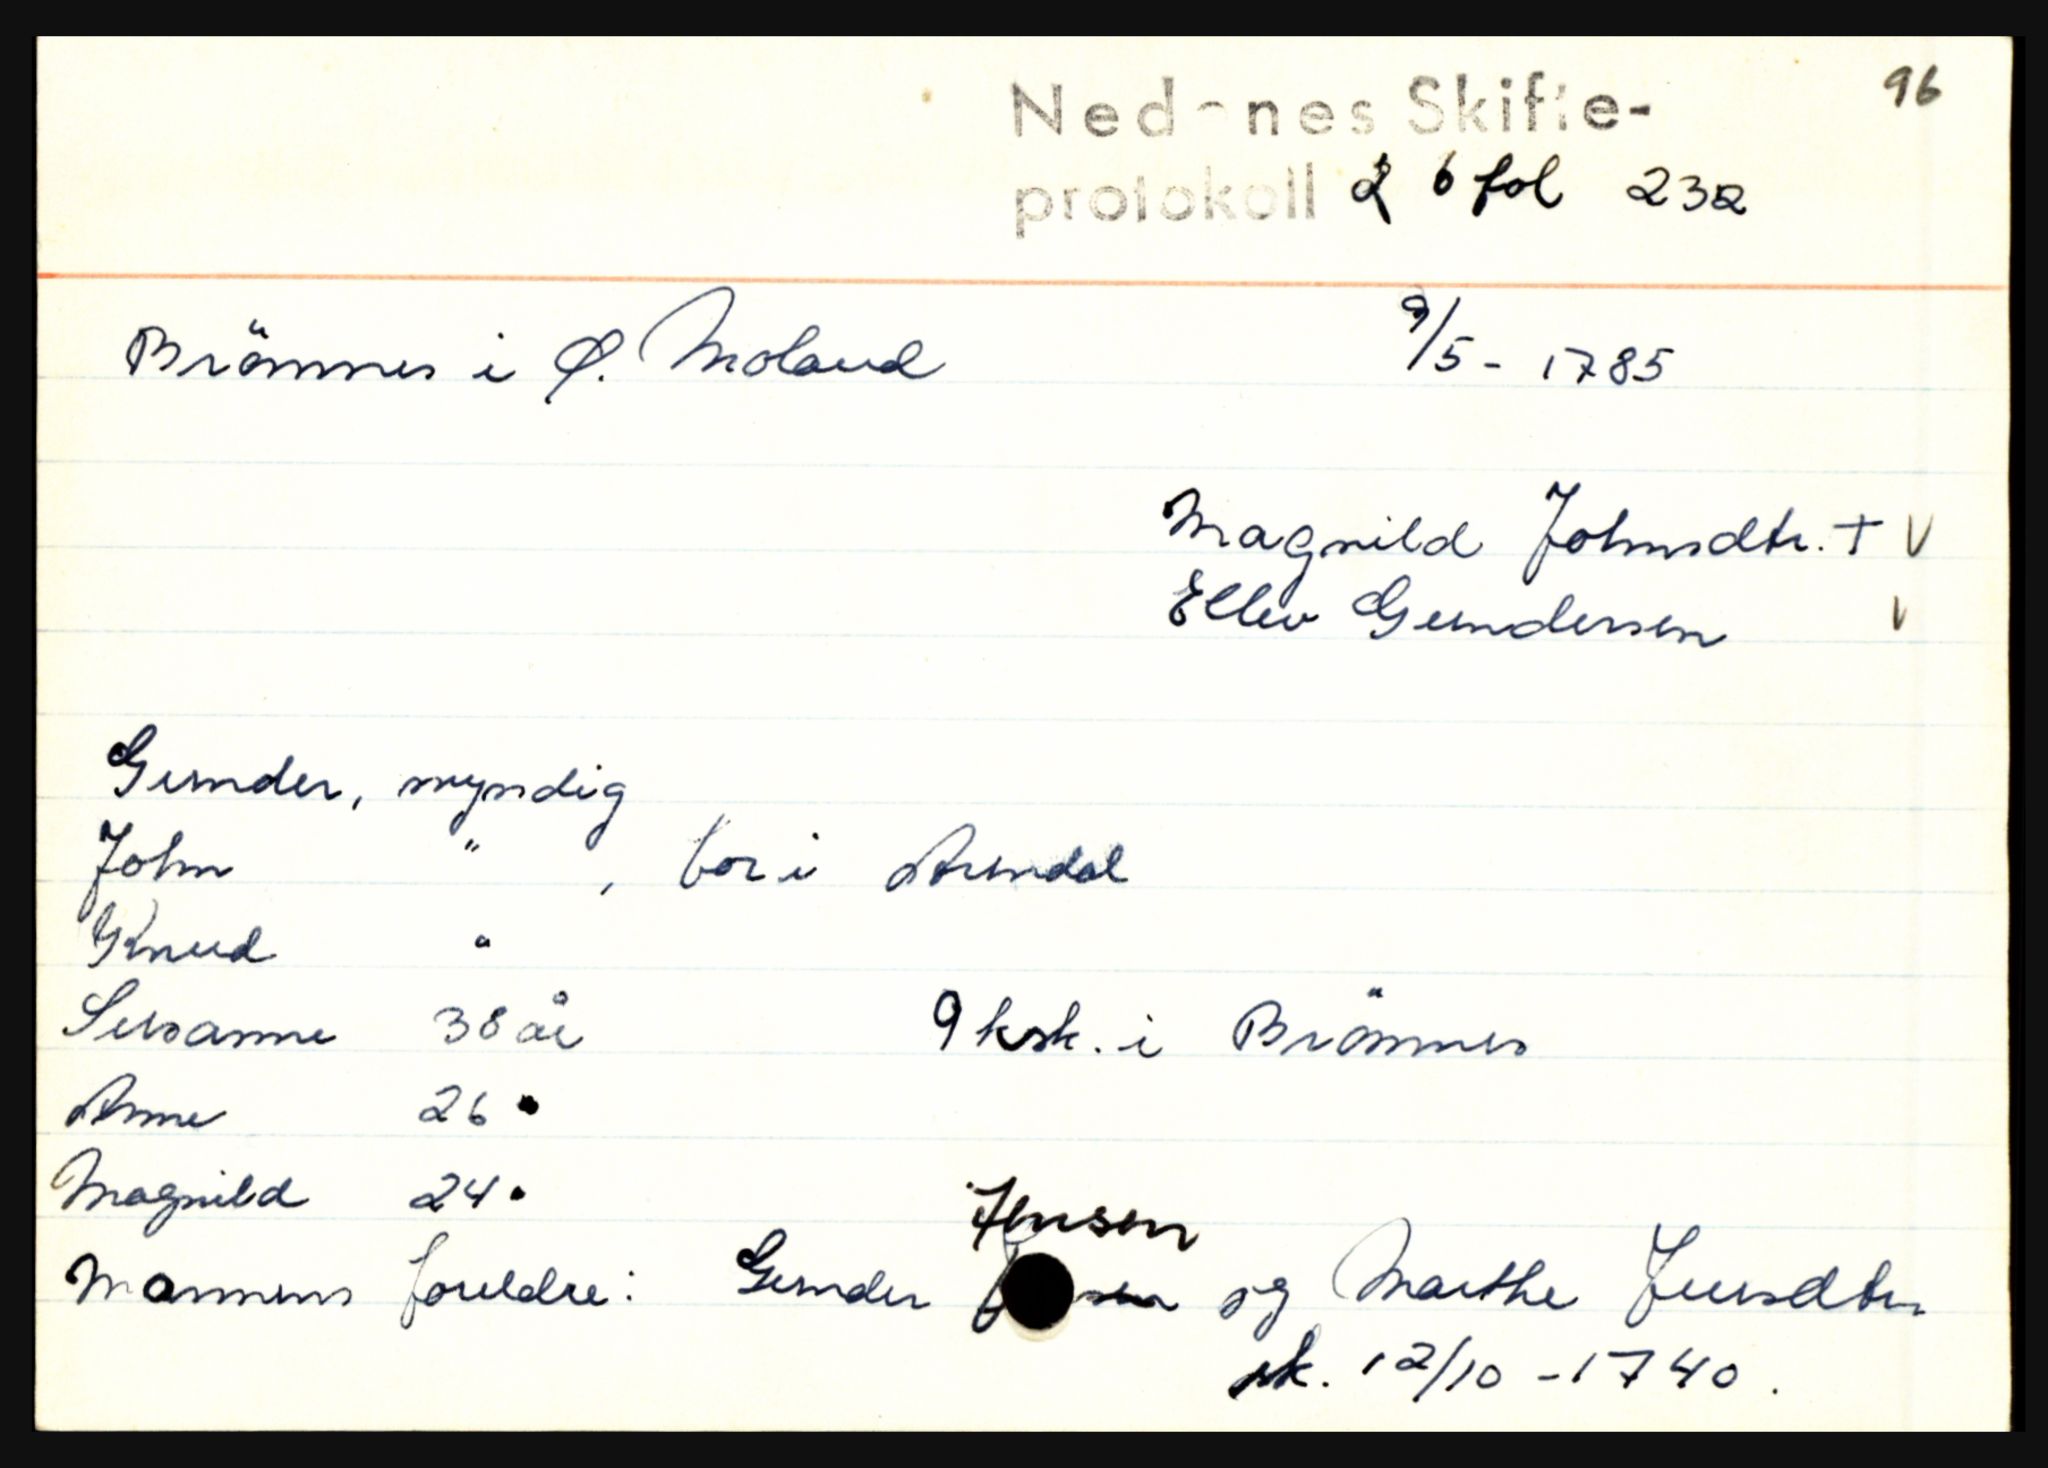 96
Nedenes Skifte-
protokoll 2 6 fol 232
Brömnes i Ø. Moland 9/5 - 1785
Magnild Johnsdtr. + V
Ellev Gundersen V
Gunder, myndig
John " , bor i Arendal
Knud "
Susanne 38 år 9 ksk. i Brömnes
Anne 26 "
Magnild 24 "
Jensen
Mannens foreldre: Gunder og Marthe Juusdtr
sk. 12/10 - 1740.